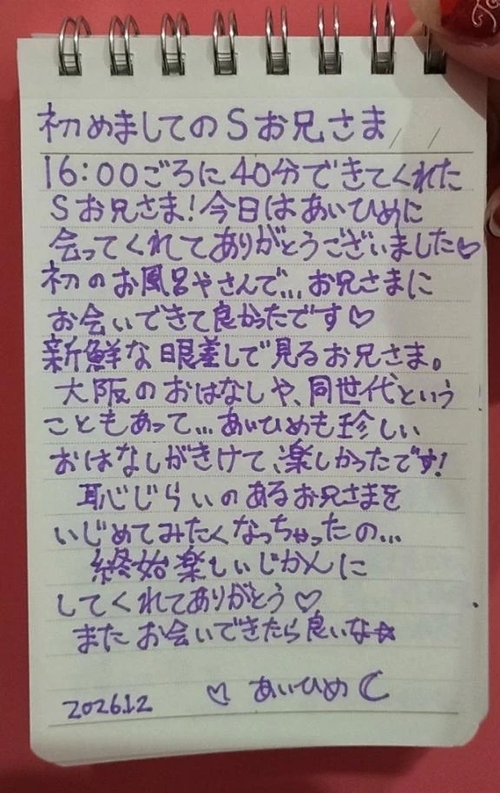 初めましてのSお兄さま
16:00ごろに40分できてくれた
Sお兄さま!今日はあいひめに
会ってくれてありがとうございました♡
初のお風呂やさんで...お兄さまに
お会いできて良かったです♡
新鮮な眼差しで見るお兄さま。
大阪のおはなしや、同世代という
こともあって...あいひめも珍しい
おはなしがきけて、楽しかったです!
恥じらいのあるお兄さまを
いじめてみたくなっちゃったの...
終始楽しいじかんに
してくれてありがとう♡
またお会いできたら良いな☆
2026.1.2 ♡ あいひめ☾